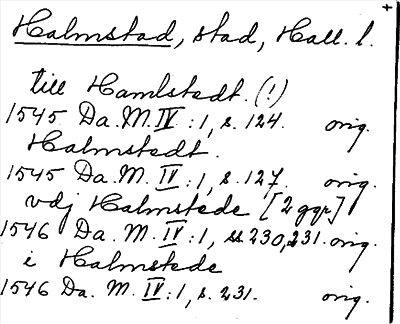 Halmstad, stad, Hall. l.
till Hamlstedt. (!)
1545 Da. M. IV : 1, s. 124. orig.
Halmstedt.
1545 Da. M. IV : 1, s. 127. orig.
vdj Halmstede [2 ggr]
1546 Da. M. IV : 1, ss 230, 231. orig.
i Halmstede
1546 Da. M. IV : 1, s. 231. orig.